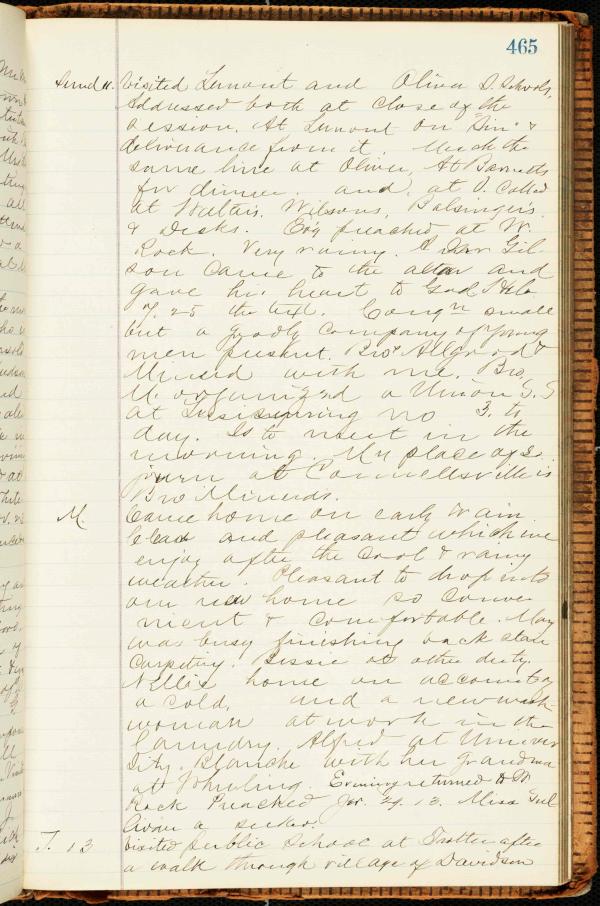 465
Sund 11. Visited Lemont and Oliver S. Schools,
Addressed both at close of the
session. At Lemont on Sin &
deliverance from it. Much the
same line at Oliver, At Barnetts
for dinner. and at S. Called
at Wilsons, Balsingers
& Desks. Evg preached at W.
Rock. Very rainy. Gil-
son Came to the altar and
gave his heart to God. Heb
7. 25 the text. Congn small
but a goodly Company of young
men present. Bro Allgood &
Minerd with me. Bro,
M. organized a Union S. S
at no 3. to
day. Is to meet in the
morning. My place of so
journ at Connellsville is
Bro Minerds.
M. Came home on early train
Clear and pleasant which we
enjoy after the Cool & rainy
weather. Pleasant to drop into
our new home so Conve
nient & Comfortable. May
was busy finishing back stair
Carpeting. Bessie at other duty.
Nellie home on account of
a cold. and a new wash
woman at work in the
laundry. Alfred at Univer
sity. Blanche with her grandma
at Wheeling. Evening returned to W
Rock Preached Jer. 29. 13. Miss
a seeker.
T. 13 Visited public School at Trotter after
a walk through village of Davidson